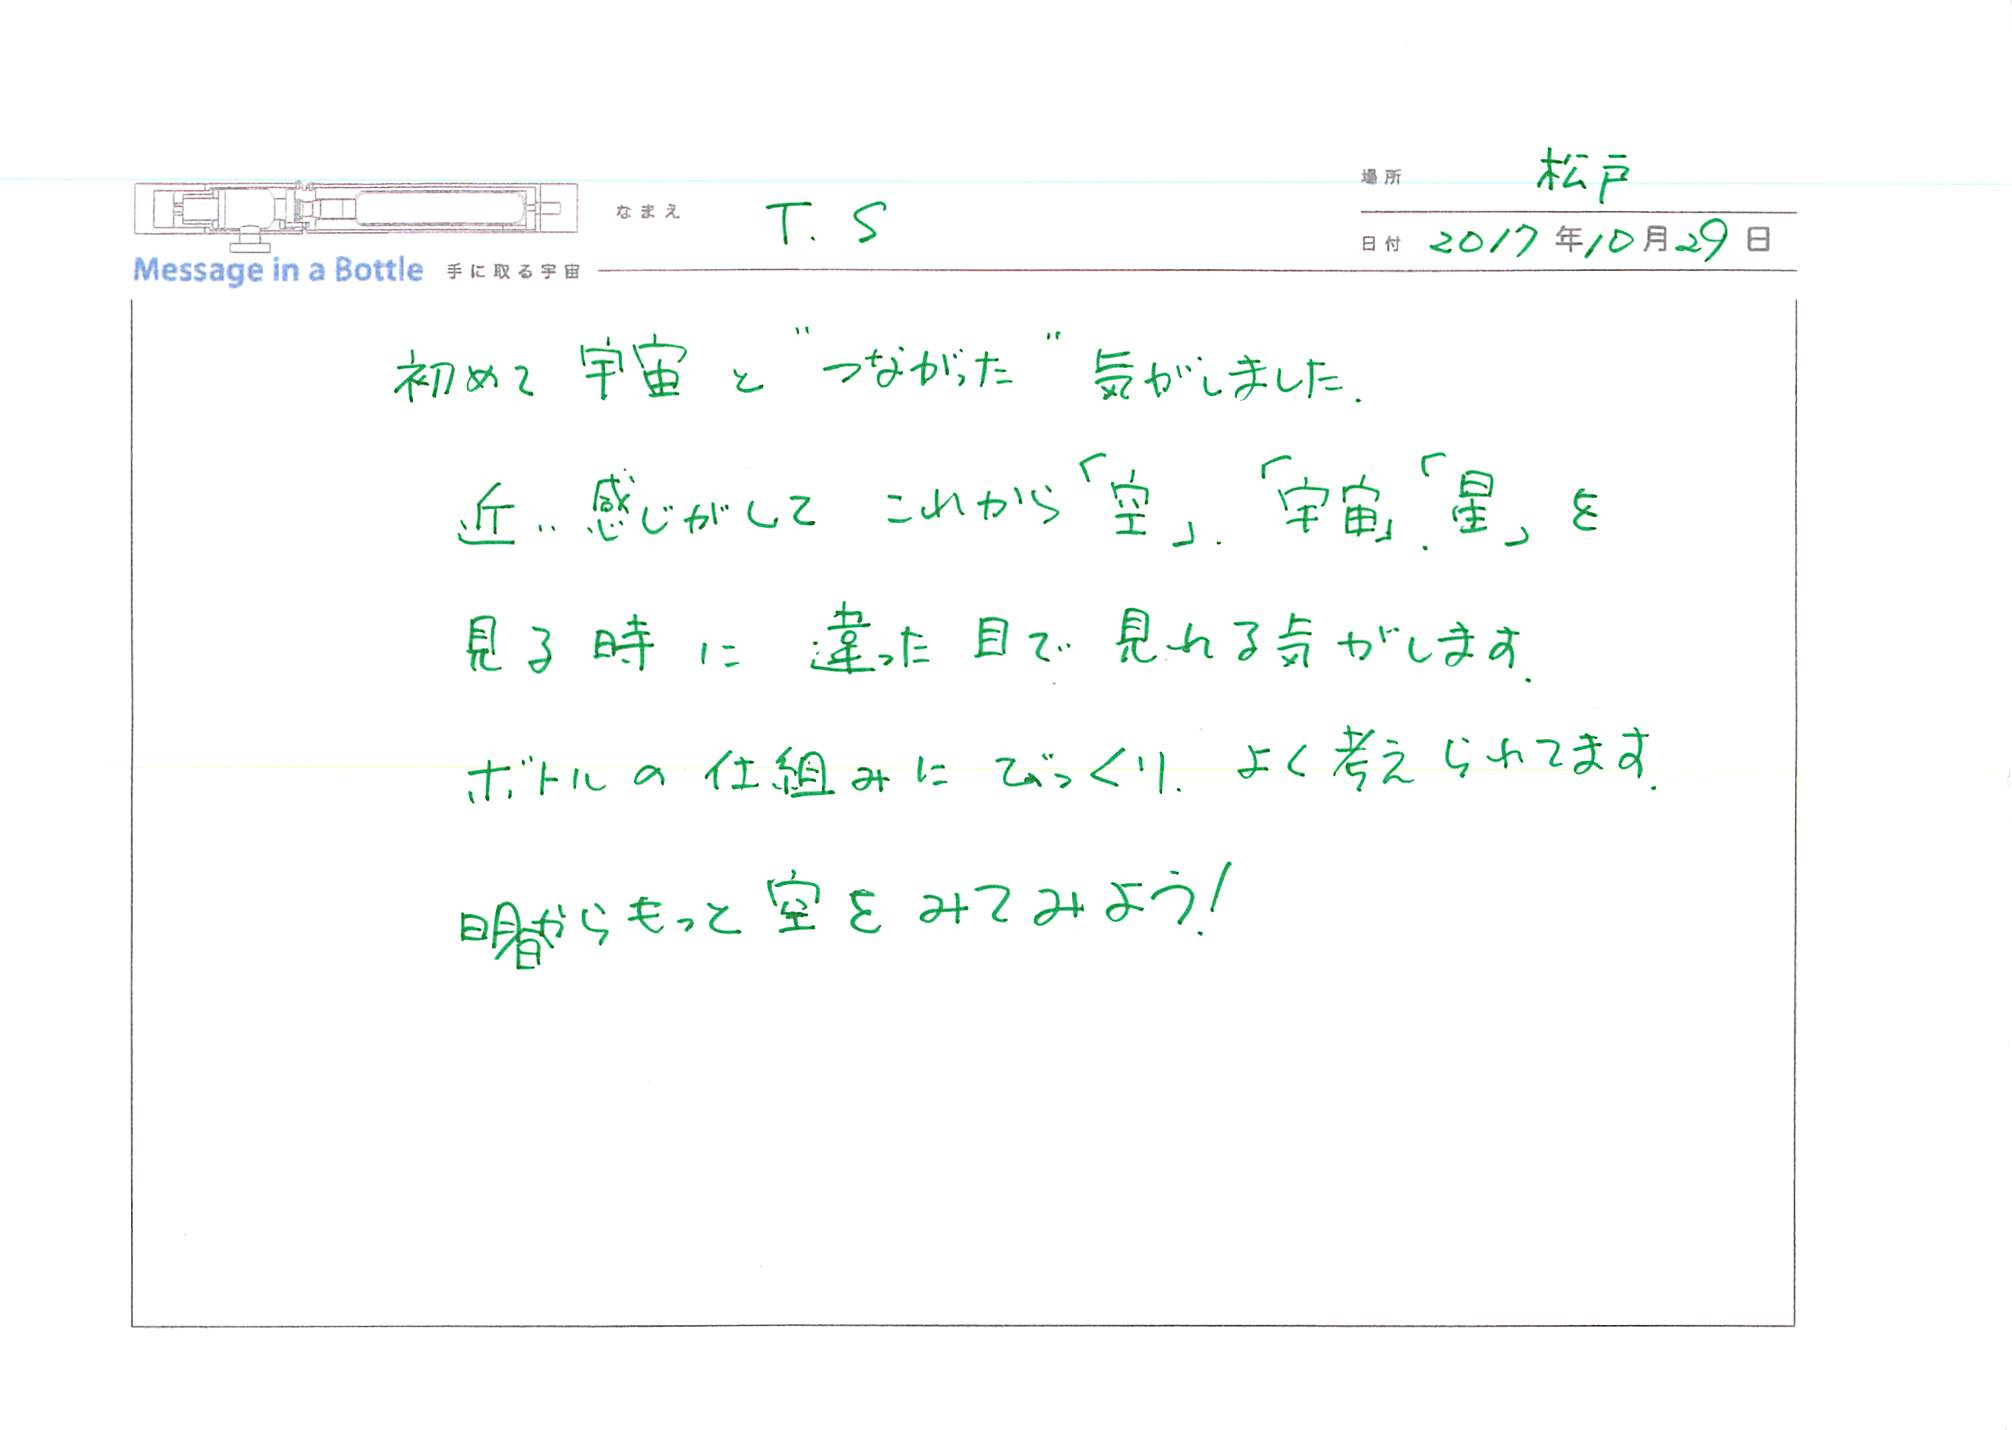 場所 松戸
なまえ T. S
日付 2017年10月29日
Message in a Bottle 手に取る宇宙
初めて宇宙と"つながった"気がしました.
近い感じがして これから「空」.「宇宙」.「星」を
見る時に 違った目で見れる気がします.
ボトルの仕組みにびっくり. よく考えられてます.
からもっと空をみてみよう!